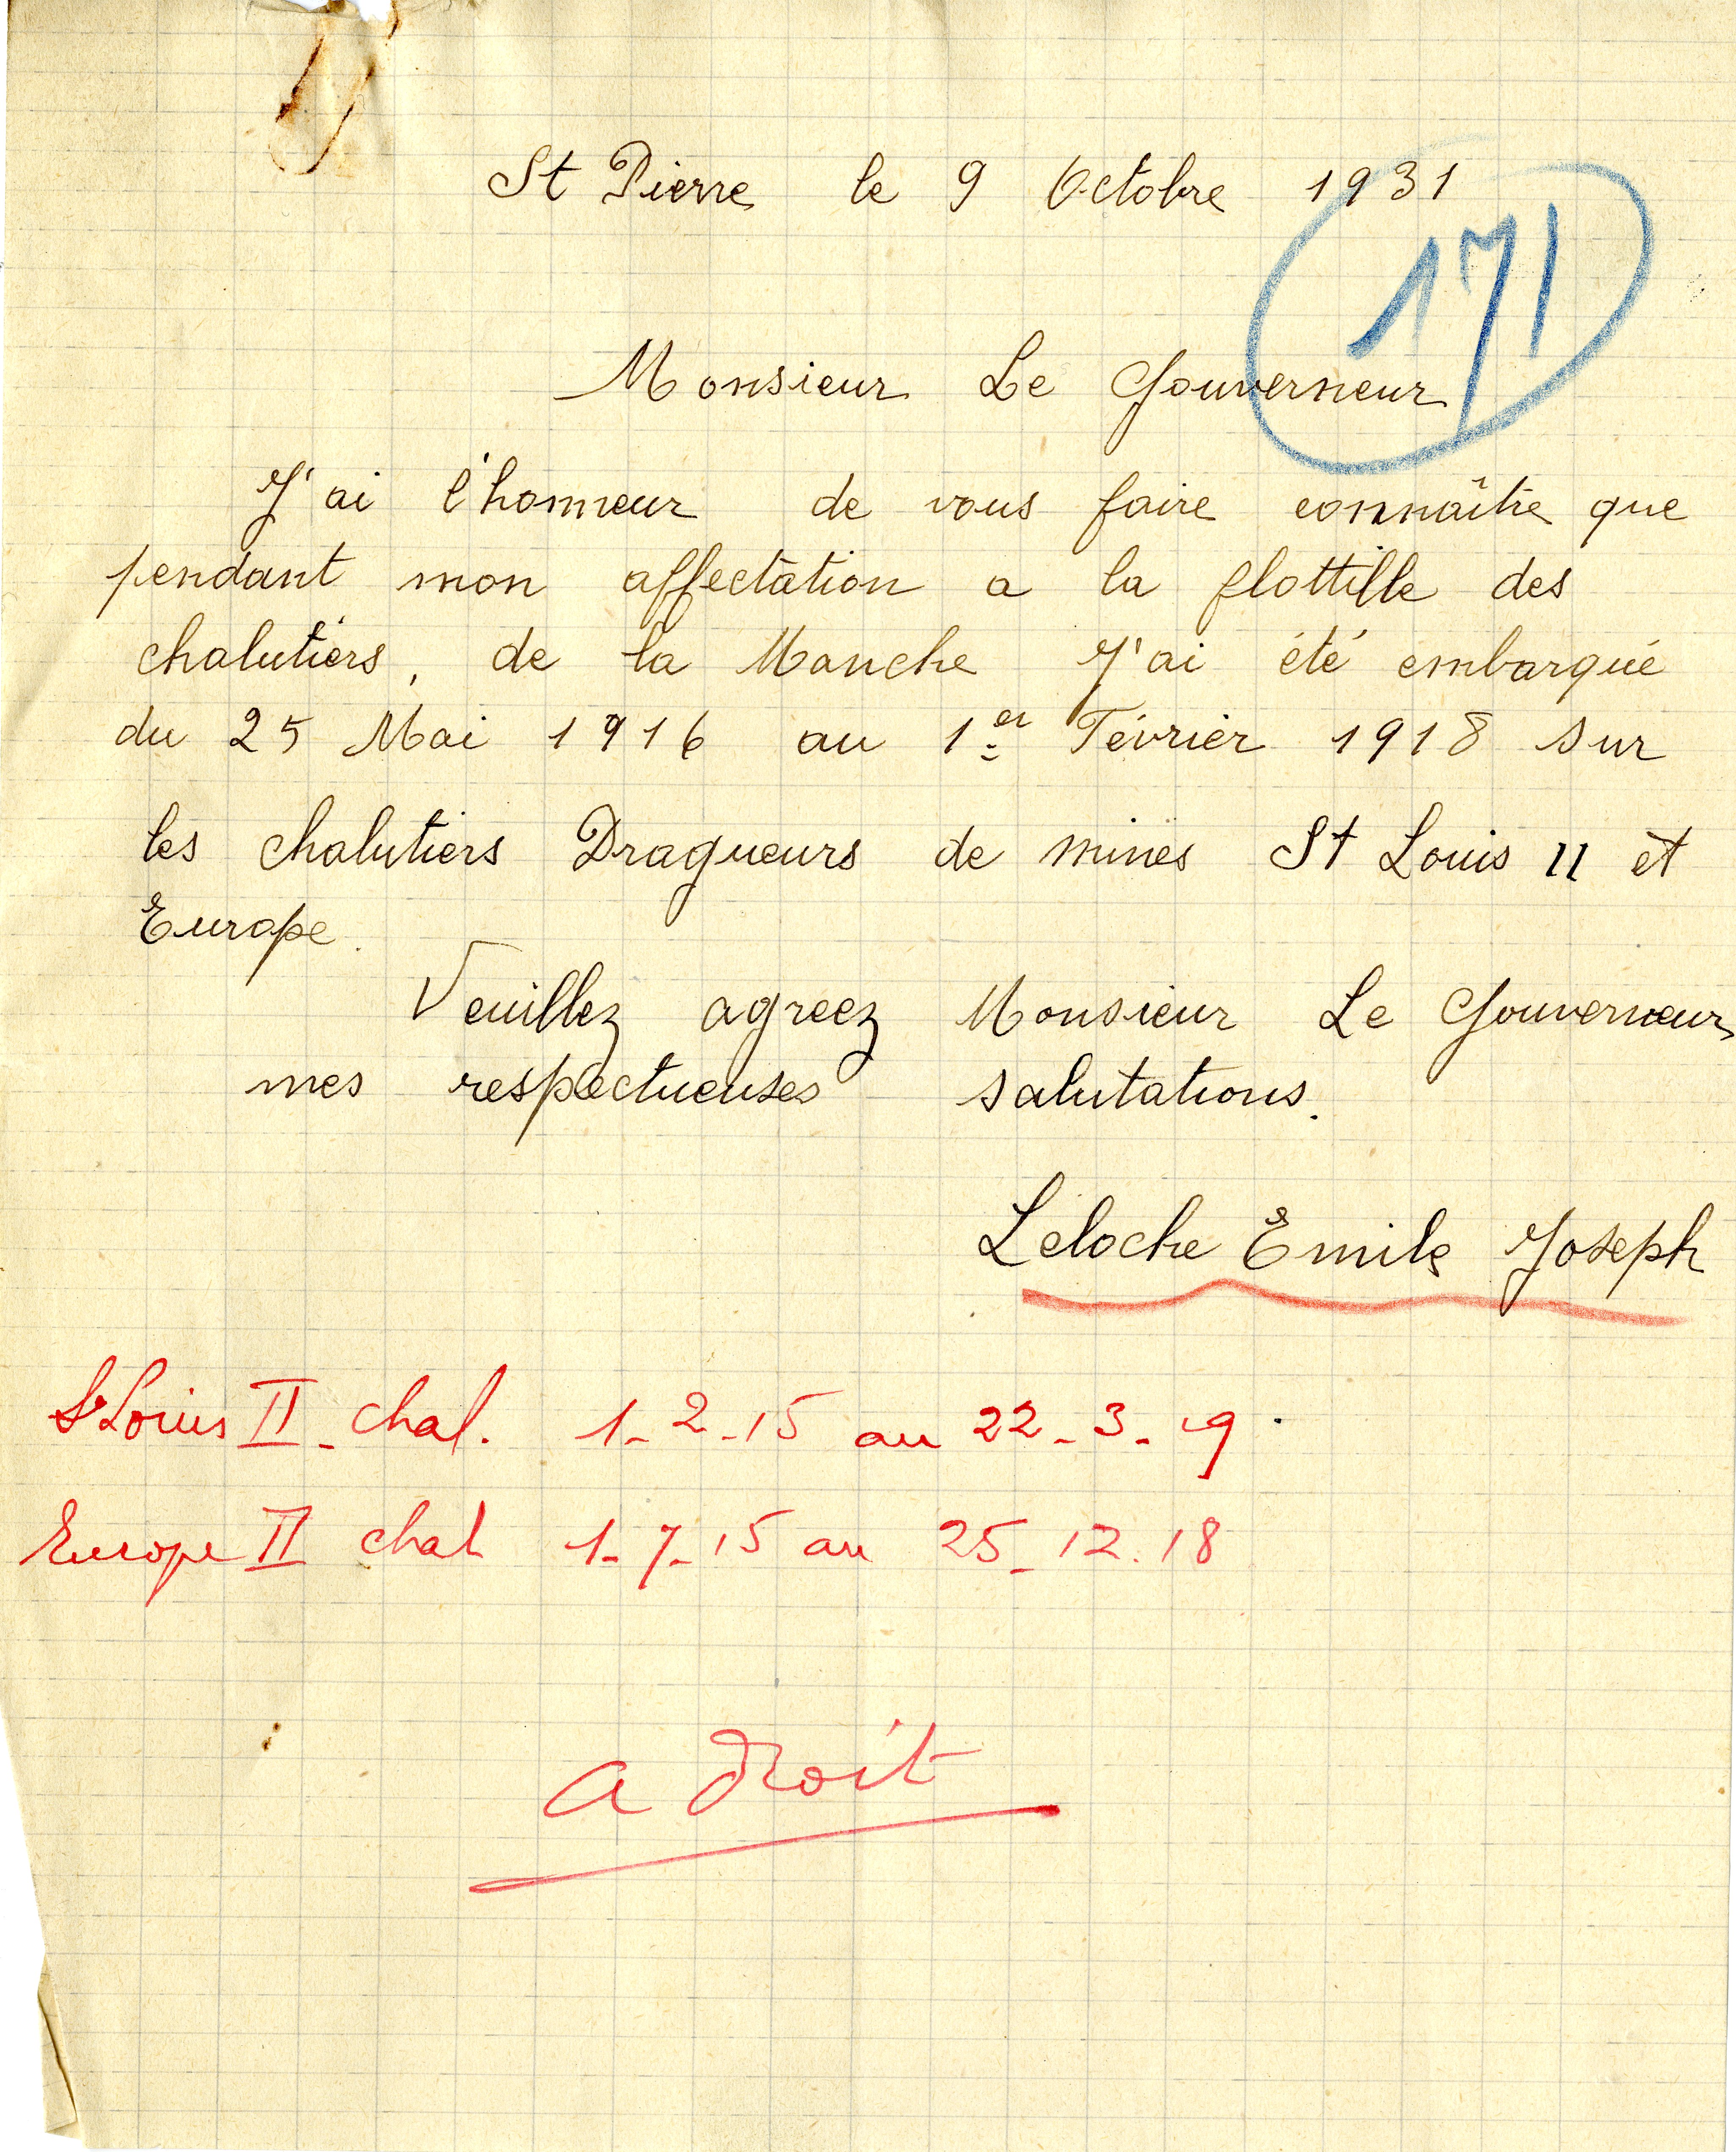 St Pierre le 9 Octobre 1931
171
Monsieur Le Gouverneur
J'ai l'honneur de vous faire connaître que
pendant mon affectation a la flottille des
chalutiers, de la Manche J'ai été embarqué
du 25 Mai 1916 au 1er Février 1918 sur
les chalutiers Dragueurs de mines St Louis II et
Europe.
Veuillez agreez Monsieur Le Gouverneur
mes respectueuses salutations.
Leloche Emile Joseph
St Louis II - chal. 1-2-15 au 22-3-19.
Europe II chal 1-7-15 au 25-12.18
a droit